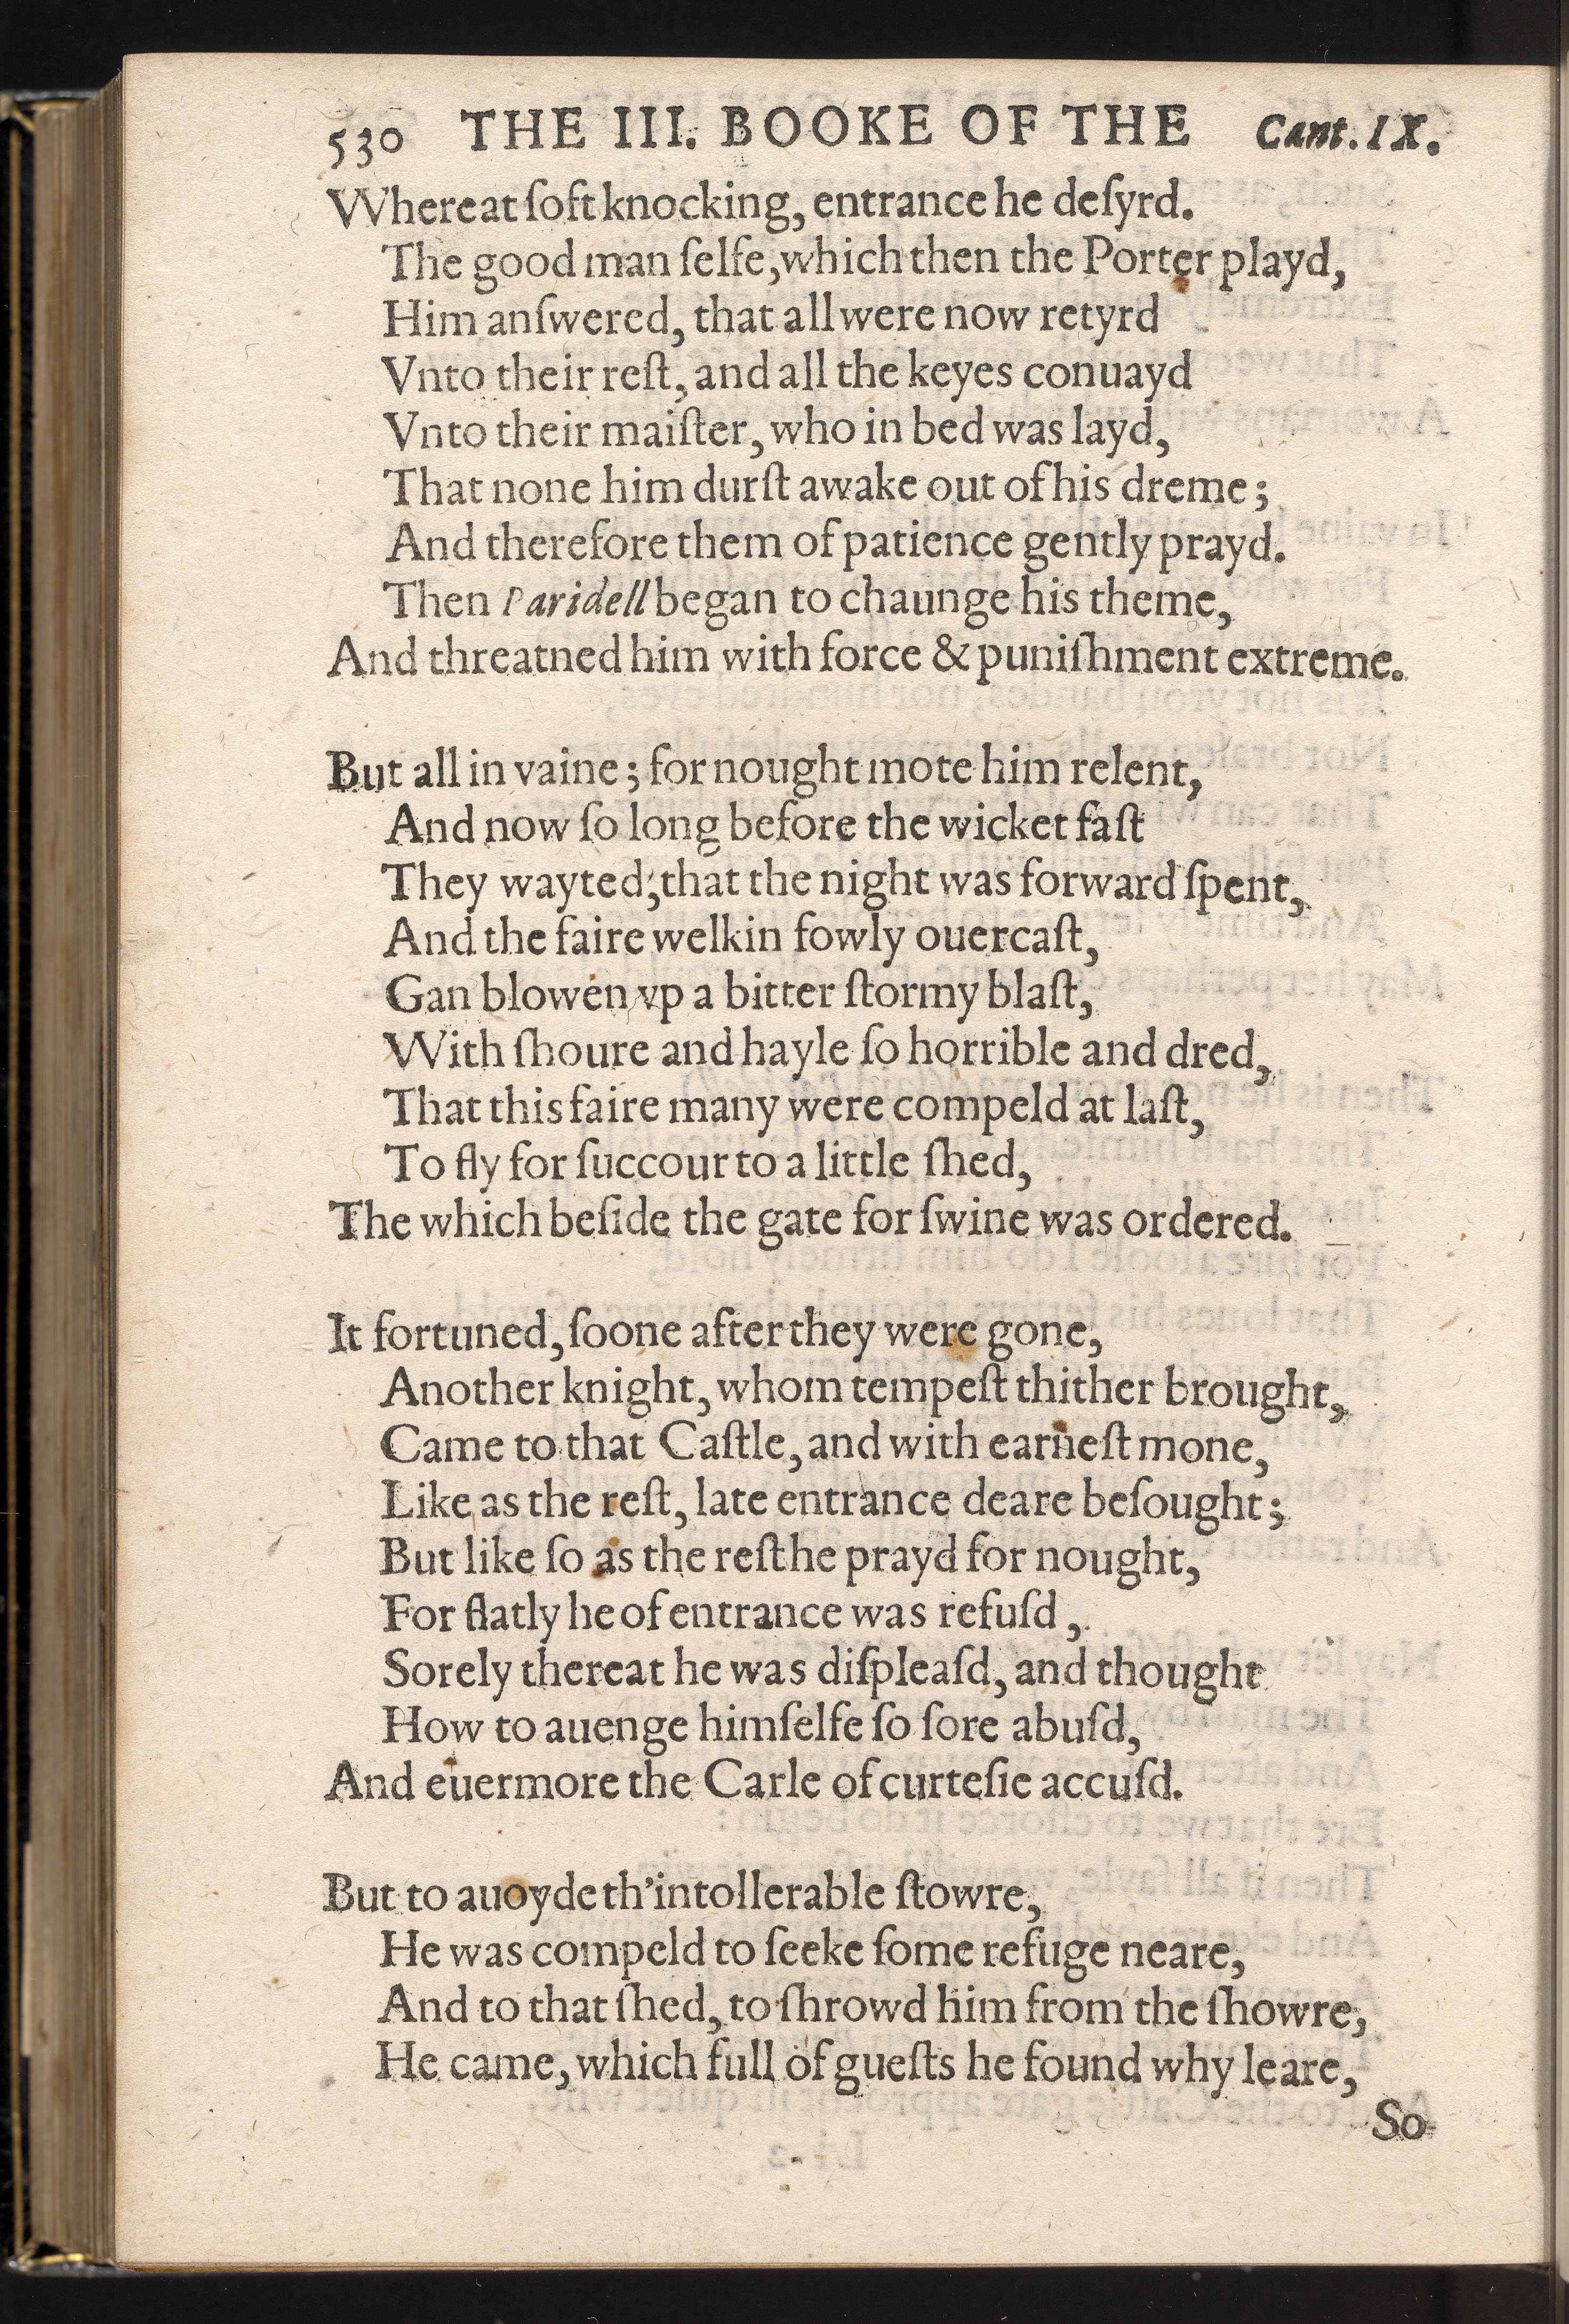 530 THE III. BOOKE OF THE Cant. IX.
VVhereat ſoft knocking, entrance he deſyrd.
The good man ſelfe, which then the Porter playd,
Him anſwered, that all were now retyrd
Vnto their reſt, and all the keyes conuayd
Vnto their maiſter, who in bed was layd,
That none him durſt awake out of his dreme;
And therefore them of patience gently prayd.
Then Paridell began to chaunge his theme,
And threatned him with force & puniſhment extreme.
But all in vaine; for nought mote him relent,
And now ſo long before the wicket faſt
They wayted, that the night was forward ſpent,
And the faire welkin fowly ouercaſt,
Gan blowen vp a bitter ſtormy blaſt,
VVith ſhoure and hayle ſo horrible and dred,
That this faire many were compeld at laſt,
To fly for ſuccour to a little ſhed,
The which beſide the gate for ſwine was ordered.
It fortuned, ſoone after they were gone,
Another knight, whom tempeſt thither brought,
Came to that Caſtle, and with earneſt mone,
Like as the reſt, late entrance deare beſought;
But like ſo as the reſt he prayd for nought,
For flatly he of entrance was refuſd,
Sorely thereat he was diſpleaſd, and thought
How to auenge himſelfe ſo ſore abuſd,
And euermore the Carle of curteſie accuſd.
But to auoyde th'intollerable ſtowre,
He was compeld to ſeeke ſome refuge neare,
And to that ſhed, to ſhrowd him from the ſhowre,
He came, which full of gueſts he found why leare,
So